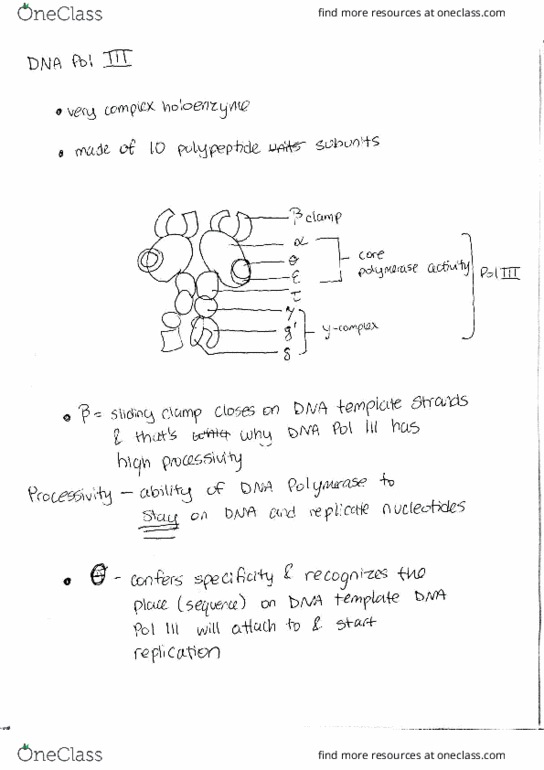 OneClass
find more resources at oneclass.com
DNA Pol III
• very complex holoenzyme
• made of 10 polypeptide units subunits
β clamp
α
θ
ε
core
polymerase activity
Pol III
τ
γ
δ'
δ
γ-complex
• β = sliding clamp closes on DNA template strands
& that's why DNA Pol III has
high processivity
Processivity – ability of DNA Polymerase to
stay on DNA and replicate nucleotides
• θ - confers specificity & recognizes the
place (sequence) on DNA template DNA
Pol III will attach to & start
replication
OneClass
find more resources at oneclass.com